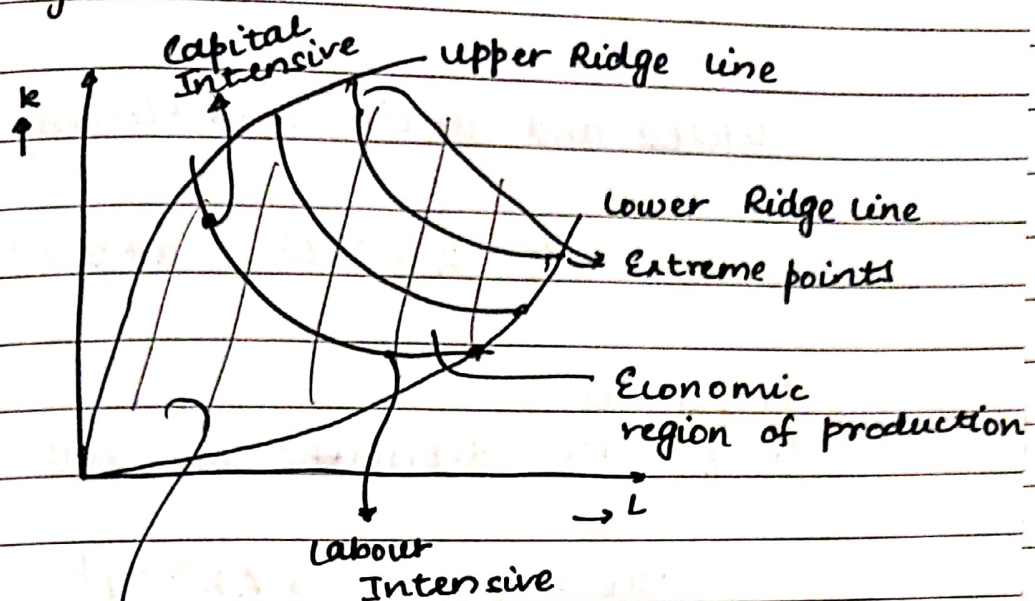 Capital
Intensive
Upper Ridge line
k
Lower Ridge line
Extreme points
Economic
region of production
L
Labour
Intensive